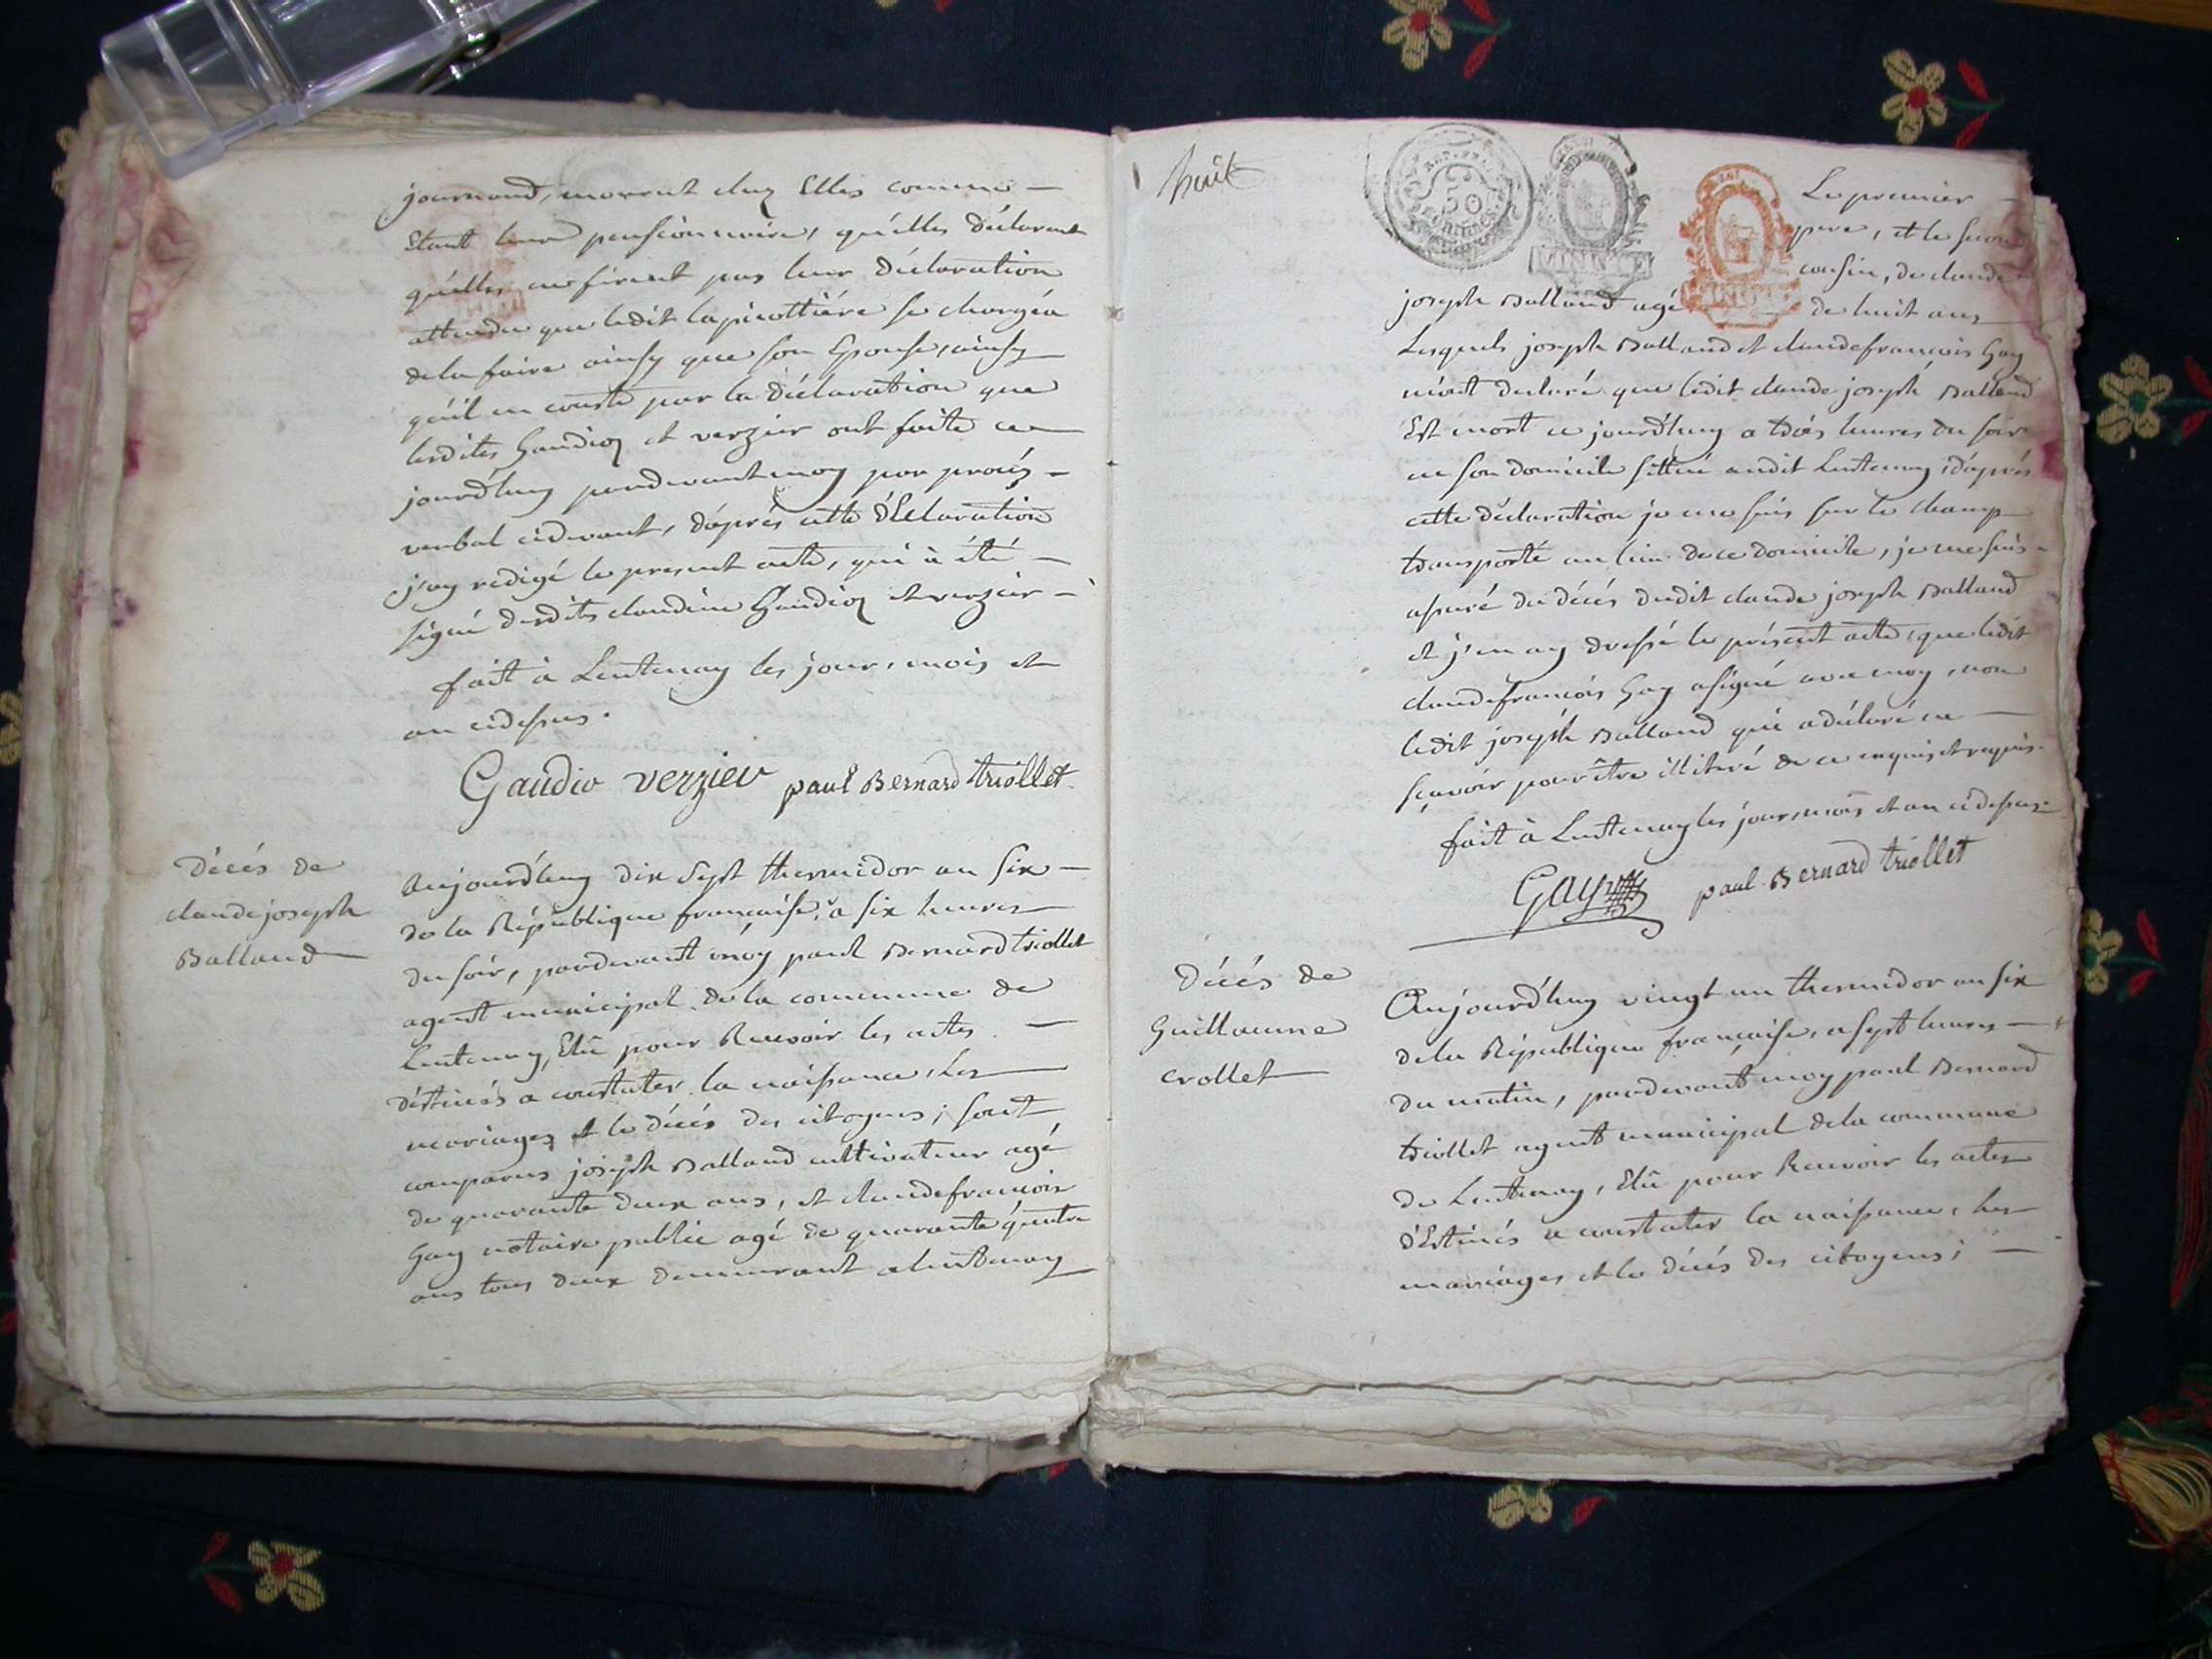 journand, morrent chez Elles comme —
Etant leur pensionnaire, quélles déclarent
quélles ne firent pas leur déclaration
attendu que ledit lapicottiére se chargéa
de la faire ainsy que son Epouse, ainsy
quil en conste par la déclaration que
lesdites Gaudioz et verzier ont faite ce
jourdhuy pardevant moy par procés —
verbal cidevant, dáprés cette déClaration
j'ay redigé le present acte, qui à été —
signé desdits claudine Gaudioz et verzier —
fait à Lentenay les jour, mois et
an cidessus.
Gaudio verzier paul Bernard triollet
Décés de
claude joseph
Balland
Aujourdhuy dix Sept thermidor an Six —
de la République francaise, a six heures
du soir, pardevant moy paul Bernard triollet
agent municipal de la commune de
Lentenay, Elû pour Recevoir les actes —
déstinés a constater la naissance, Les
mariages et le décés des citoyens; sont
comparus joseph Balland cultivateur agé
de quarante deux ans, et claudefrancois
Gay notaire public agé de quarante quatre
ans tous deux demeurant a lentenay
huit
50
Le premier —
pere, et le second
cousin, de claude
joseph Balland agé de huit ans
Lesquels joseph Balland et claudefrancois Gay
m'ont declaré que ledit claude joseph Balland
Est mort ce jourdhuy a trois heures du soir
en son domicile sittué audit Lentenay, dáprés
cette déclaration je me suis sur le champ
transporté au lieu de ce domicile, je me suis
assuré du décés dudit claude joseph Balland
et j'en ay dressé le présent acte, que ledit
claudefrancois Gay a signé avec moy, non
ledit joseph Balland qui a déclaré ne —
scavoir pour être illiteré de ce enquis et requis.
fait à Lentenay les jour, mois et an cidessus.
Gay paul Bernard triollet
Décés de
Guillaume
crollet
Aujourdhuy vingt un thermidor an six
de la République francaise, a sept heures —
du matin, pardevant moy paul Bernard
triollet agent municipal de la commune
de Lentenay, Elû pour Recevoir les actes
d'Estinés a constater la naissance, les
mariages et le décés des citoyens; —